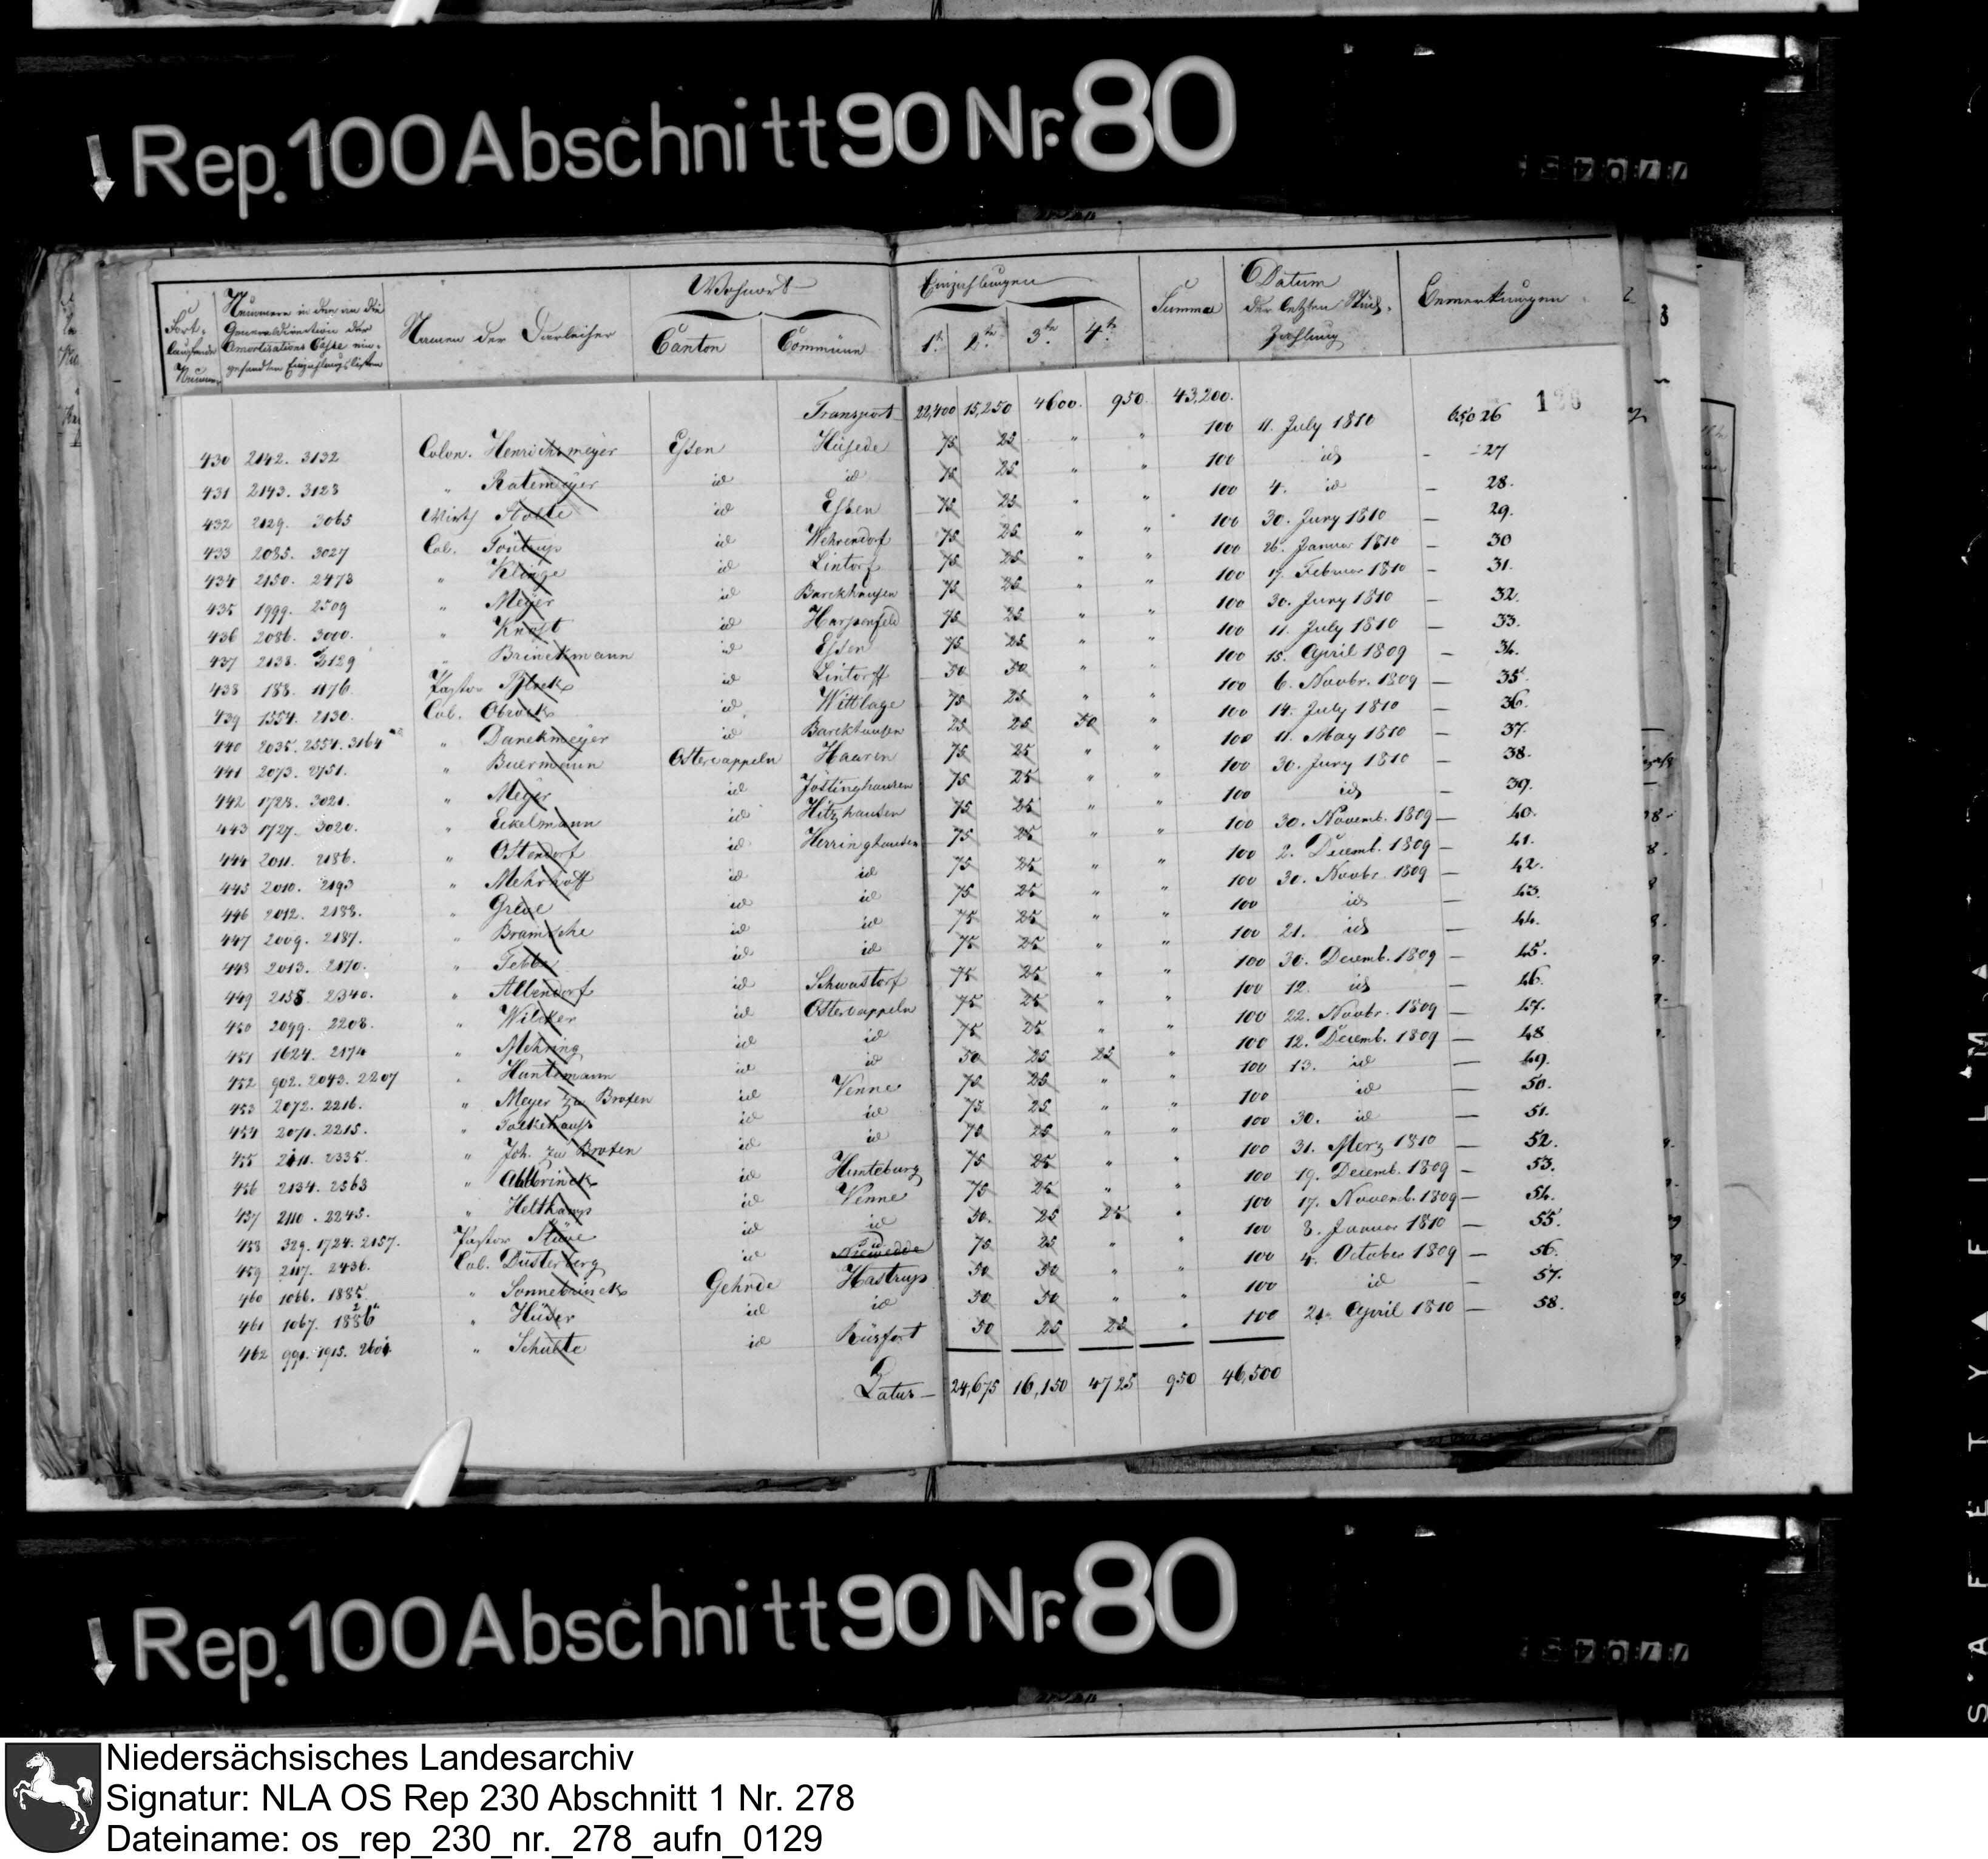 Rep. 100 Abschnitt 90 Nr. 80
Fort- laufende Numer
Nummern in den an die General Direction der Amortisations Casse ein- gesandten Einzahlungslisten
Namen der Darleiher
Wohnort
Canton
Commüne
Einzahlungen
1te 2te 3te 4te
Summa
Datum der letzten Stück- Zahlung
Bemerkungen
Transport 22,400 15,250 4600. 950. 43,200.
430 2142. 3132 Colon. Henrichsmeyer Essen Hüsede 75 25 " " 100 11. July 1810 26
431 2143. 3128 " Ratemeyer id id 75 25 " " 100 id - 27
432 2129. 3065 Wirth Stolte id Essen 75 25 " " 100 4. id - 28.
433 2085. 3027 Col. Töntrup id Wehrendorf 75 25 " " 100 30. Juny 1810 - 29.
434 2150. 2473 " Klinge id Lintorf 75 25 " " 100 26. Januar 1810 - 30
435 1999. 2509 " Meyer id Barckhausen 75 25 " " 100 17. Februar 1810 - 31.
436 2086. 3000. " Knost id Harpenfeld 75 25 " " 100 30. Juny 1810 - 32.
437 2138. 3129 " Brinckmann id Essen 75 25 " " 100 11. July 1810 - 33.
438 188. 1176. Pastor id Lintorff 50 50 " " 100 15. April 1809 - 34.
439 1554. 2130. Col. Obrock id Wittlage 75 25 " " 100 6. Novbr. 1809 - 35.
440 2035. 2554. 3164 " Danckmeyer id Barckhausen 25 25 50 " 100 14. July 1810 - 36.
441 2073. 2751. " Buermann Ostercappeln Haaren 75 25 " " 100 11. May 1810 - 37.
442 1728. 3021. " Meyer id Jöstinghausen 75 25 " " 100 30. Juny 1810 - 38.
443 1727. 3020. " Eckelmann id Hitzhausen 75 25 " " 100 id - 39.
444 2011. 2186. " Ostendorf id Herringhausen 75 25 " " 100 30. Novemb. 1809 - 40.
445 2010. 2193 " Mehrhoff id id 75 25 " " 100 2. Decemb. 1809 - 41.
446 2012. 2188. " Greve id id 75 25 " " 100 30. Novbr. 1809 - 42.
447 2009. 2187. " Bramsche id id 75 25 " " 100 id - 43.
448 2013. 2170. " Tebbe id id 75 25 " " 100 21. id - 44.
449 2158. 2340. " Albendorf id Schwastorf 75 25 " " 100 30. Decemb. 1809 - 45.
450 2099. 2208. " Wilcker id Ostercappeln 75 25 " " 100 12. id - 46.
451 1624. 2174 " Mehring id id 75 25 " " 100 22. Novbr. 1809 - 47.
452 902. 2043. 2207 " Huntemann id id 50 25 25 " 100 12. Decemb. 1809 - 48
453 2072. 2216. " Meyer zu Broxten id Venne 75 25 " " 100 13. id - 49.
454 2071. 2215. " id id 75 25 " " 100 id - 50.
455 2111. 2335. " Joh. zu Broxten id id 75 25 " " 100 30. id - 51.
456 2134. 2563 " Ahlbrinck id Hunteburg 75 25 " " 100 31. Merz 1810 - 52.
457 2110. 2245. " Helkamp id Venne 75 25 " " 100 19. Decemb. 1809 - 53.
458 329. 1724. 2157. Pastor Stüve id id 50. 25 25 " 100 17. Novemb. 1809 - 54.
459 2117. 2436. Col. Dusterberg id id 75 25 " " 100 8. Januar 1810 - 55.
460 1066. 1885. " Sonnebrinck Gehrde Hastrup 50 50 " " 100 4. October 1809 - 56.
461 1067. 1886 " Hüder id id 50 50 " " 100 id - 57.
462 991. 1915. " Schutte id Rüsfort 50 25 25 " 100 21. April 1810 - 58.
Latus 24,675 16,150 4725 950 46,500
Rep. 100 Abschnitt 90 Nr. 80
Niedersächsisches Landesarchiv
Signatur: NLA OS Rep 230 Abschnitt 1 Nr. 278
Dateiname: os_rep_230_nr._278_aufn_0129